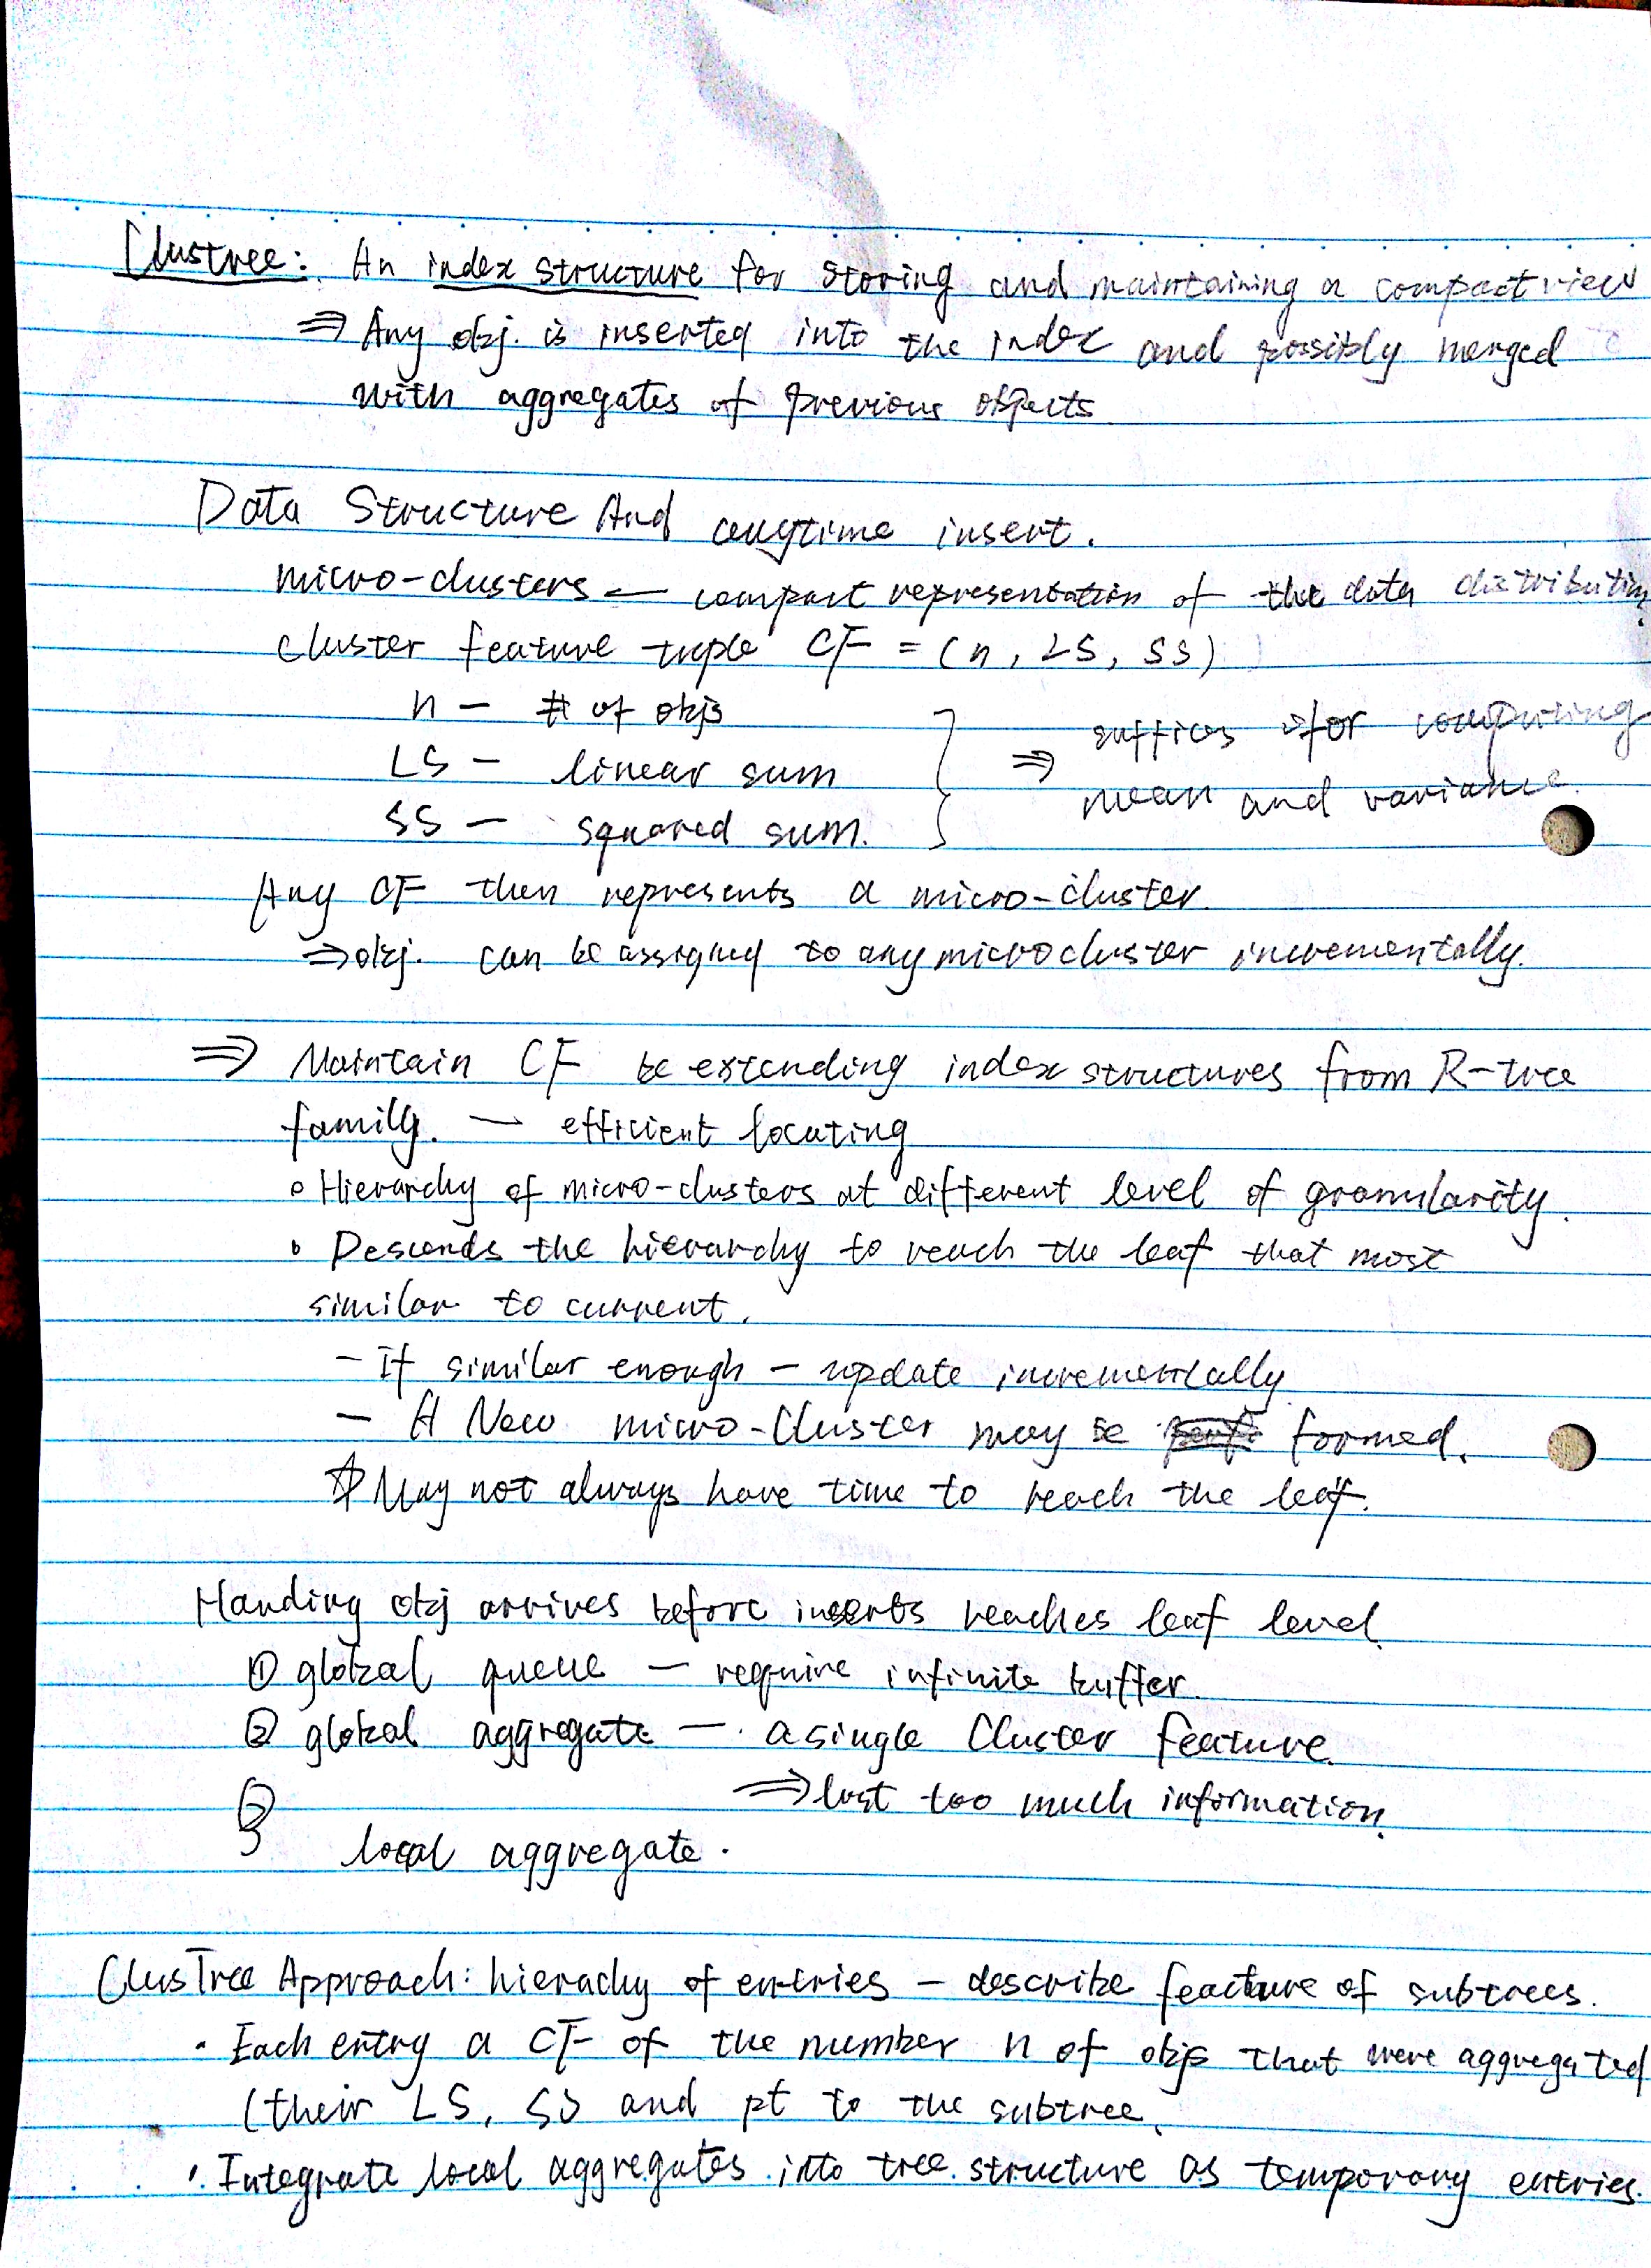 Clustree: An index structure for storing and maintaining a compact view
⇒ Any obj. is inserted into the index and possibly merged
with aggregates of previous objects
Data Structure And anytime insert.
micro-clusters — compact representation of the data distribution.
cluster feature tuple CF = (n, LS, SS)
n — # of objs
LS — linear sum
SS — squared sum.
⇒ suffices for computing
mean and variance.
Any CF then represents a micro-cluster.
⇒ obj. can be assigned to any microcluster incrementally.
⇒ Maintain CF be extending index structures from R-tree
family. — efficient locating
◦ Hierarchy of micro-clusters at different level of granularity.
◦ Descends the hierarchy to reach the leaf that most
similar to current.
- If similar enough — update incrementally
- A New micro-Cluster may be formed.
☆ May not always have time to reach the leaf.
Handing obj arrives before inserts reaches leaf level.
① global queue — require infinite buffer.
② global aggregate — a single Cluster feature.
⇒ lost too much information.
③ local aggregate.
ClusTree Approach: hierachy of entries — describe feature of subtrees.
· Each entry a CF of the number n of objs that were aggregated
(their LS, SS and pt to the subtree.
· Integrate local aggregates into tree structure as temporary entries.